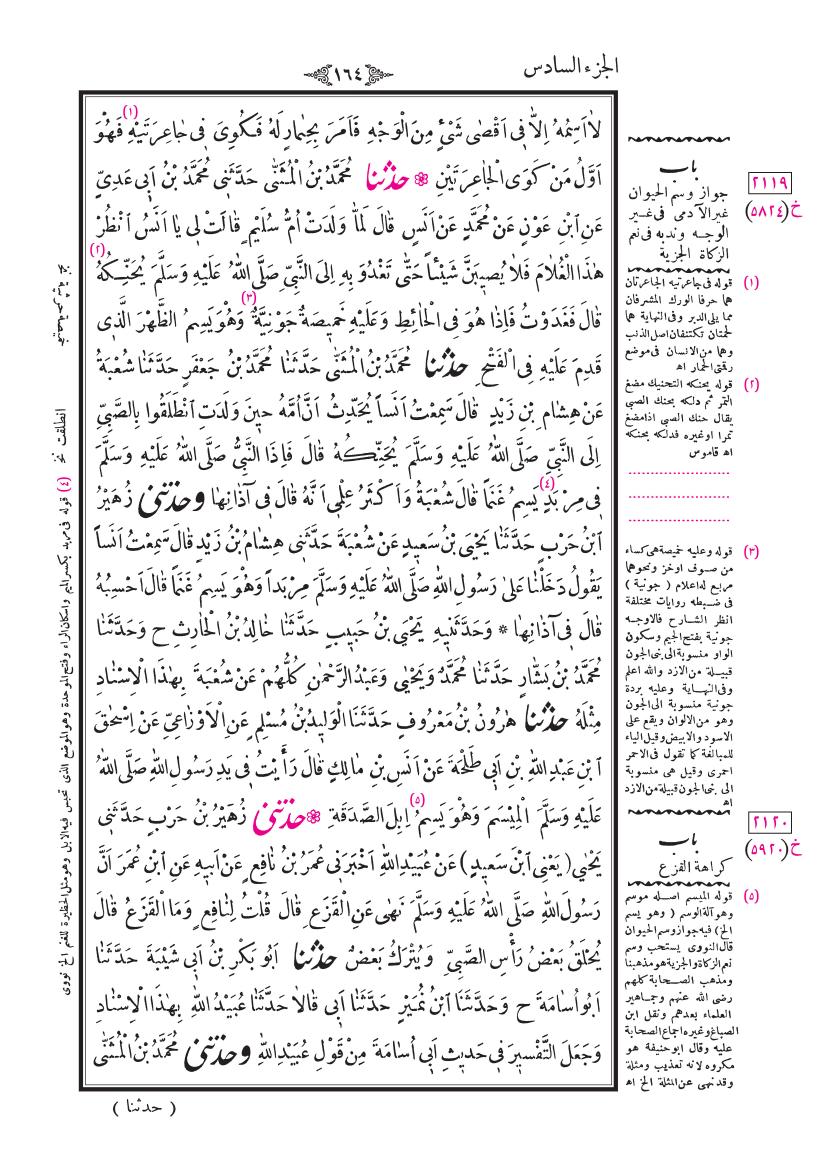 الجزء السادس
١٦٤
لَا أَسِمُهُ إِلَّا فِي أَقْصَى شَيْءٍ مِنَ الْوَجْهِ فَأَمَرَ بِحِمَارٍ لَهُ فَكُوِيَ فِي جَاعِرَتَيْهِ (١) فَهُوَ
أَوَّلُ مَنْ كَوَى الْجَاعِرَتَيْنِ ۞ حَدَّثَنَا مُحَمَّدُ بْنُ الْمُثَنَّى حَدَّثَنِي مُحَمَّدُ بْنُ أَبِي عَدِيٍّ
عَنِ ابْنِ عَوْنٍ عَنْ مُحَمَّدٍ عَنْ أَنَسٍ قَالَ لَمَّا وَلَدَتْ أُمُّ سُلَيْمٍ قَالَتْ لِي يَا أَنَسُ انْظُرْ
هٰذَا الْغُلَامَ فَلَا يُصِيبَنَّ شَيْئاً حَتَّى تَغْدُوَ بِهِ إِلَى النَّبِيِّ صَلَّى اللهُ عَلَيْهِ وَسَلَّمَ يُحَنِّكُهُ (٢)
قَالَ فَغَدَوْتُ فَإِذَا هُوَ فِي الْحَائِطِ وَعَلَيْهِ خَمِيصَةٌ (٣) جَوْنِيَّةٌ وَهُوَ يَسِمُ الظَّهْرَ الَّذِي
قَدِمَ عَلَيْهِ فِي الْفَتْحِ حَدَّثَنَا مُحَمَّدُ بْنُ الْمُثَنَّى حَدَّثَنَا مُحَمَّدُ بْنُ جَعْفَرٍ حَدَّثَنَا شُعْبَةُ
عَنْ هِشَامِ بْنِ زَيْدٍ قَالَ سَمِعْتُ أَنَساً يُحَدِّثُ أَنَّ أُمَّهُ حِينَ وَلَدَتِ انْطَلَقُوا بِالصَّبِيِّ
إِلَى النَّبِيِّ صَلَّى اللهُ عَلَيْهِ وَسَلَّمَ يُحَنِّكُهُ قَالَ فَإِذَا النَّبِيُّ صَلَّى اللهُ عَلَيْهِ وَسَلَّمَ
فِي مِرْبَدٍ (٤) يَسِمُ غَنَمًا قَالَ شُعْبَةُ وَأَكْثَرُ عِلْمِي أَنَّهُ قَالَ فِي آذَانِهَا وَحَدَّثَنِي زُهَيْرُ
ابْنُ حَرْبٍ حَدَّثَنَا يَحْيَى بْنُ سَعِيدٍ عَنْ شُعْبَةَ حَدَّثَنِي هِشَامُ بْنُ زَيْدٍ قَالَ سَمِعْتُ أَنَساً
يَقُولُ دَخَلْنَا عَلَى رَسُولِ اللهِ صَلَّى اللهُ عَلَيْهِ وَسَلَّمَ مِرْبَداً وَهُوَ يَسِمُ غَنَمًا قَالَ أَحْسِبُهُ
قَالَ فِي آذَانِهَا * وَحَدَّثَنِيهِ يَحْيَى بْنُ حَبِيبٍ حَدَّثَنَا خَالِدُ بْنُ الْحَارِثِ ح وَحَدَّثَنَا
مُحَمَّدُ بْنُ بَشَّارٍ حَدَّثَنَا مُحَمَّدٌ وَيَحْيَى وَعَبْدُ الرَّحْمٰنِ كُلُّهُمْ عَنْ شُعْبَةَ بِهٰذَا الْإِسْنَادِ
مِثْلَهُ حَدَّثَنَا هٰرُونُ بْنُ مَعْرُوفٍ حَدَّثَنَا الْوَلِيدُ بْنُ مُسْلِمٍ عَنِ الْأَوْزَاعِيِّ عَنْ إِسْحٰقَ
ابْنِ عَبْدِ اللهِ بْنِ أَبِي طَلْحَةَ عَنْ أَنَسِ بْنِ مَالِكٍ قَالَ رَأَيْتُ فِي يَدِ رَسُولِ اللهِ صَلَّى اللهُ
عَلَيْهِ وَسَلَّمَ الْمِيسَمَ وَهُوَ يَسِمُ (٥) إِبِلَ الصَّدَقَةِ ۞ حَدَّثَنِي زُهَيْرُ بْنُ حَرْبٍ حَدَّثَنِي
يَحْيَى (يَعْنِي ابْنَ سَعِيدٍ) عَنْ عُبَيْدِ اللهِ أَخْبَرَنِي عُمَرُ بْنُ نَافِعٍ عَنْ أَبِيهِ عَنِ ابْنِ عُمَرَ أَنَّ
رَسُولَ اللهِ صَلَّى اللهُ عَلَيْهِ وَسَلَّمَ نَهَى عَنِ الْقَزَعِ قَالَ قُلْتُ لِنَافِعٍ وَمَا الْقَزَعُ قَالَ
يُحْلَقُ بَعْضُ رَأْسِ الصَّبِيِّ وَيُتْرَكُ بَعْضٌ حَدَّثَنَا أَبُو بَكْرِ بْنُ أَبِي شَيْبَةَ حَدَّثَنَا
أَبُو أُسَامَةَ ح وَحَدَّثَنَا ابْنُ نُمَيْرٍ حَدَّثَنَا أَبِي قَالَا حَدَّثَنَا عُبَيْدُ اللهِ بِهٰذَا الْإِسْنَادِ
وَجَعَلَ التَّفْسِيرَ فِي حَدِيثِ أَبِي أُسَامَةَ مِنْ قَوْلِ عُبَيْدِ اللهِ وَحَدَّثَنِي مُحَمَّدُ بْنُ الْمُثَنَّى
( حدثنا )
باب
جواز وسم الحيوان
غير الآدمى فى غير
الوجه وندبه فى نعم
الزكاة والجزية
٢١١٩
خ (٥٨٢٤)
(١) قوله فى جاعرتيه الجاعرتان
هما حرفا الورك المشرفان
مما يلى الدبر وفى النهاية هما
لحمتان تكتنفان اصل الذنب
وهما من الانسان فى موضع
رقمتى الحمار اه
(٢) قوله يحنكه التحنيك مضغ
التمر ثم دلكه بحنك الصبى
يقال حنك الصبى اذا مضغ
تمرا او غيره فدلكه بحنكه
اه قاموس
(٣) قوله وعليه خميصة هى كساء
من صوف او خز ونحوهما
مربع له اعلام ( جونية )
فى ضبطه روايات مختلفة
انظر الشارح فالاوجه
جونية بفتح الجيم وسكون
الواو منسوبة الى بنى الجون
قبيلة من الازد والله اعلم
وفى النهاية وعليه بردة
جونية منسوبة الى الجون
وهو من الالوان ويقع على
الاسود والابيض وقيل الياء
للمبالغة كما تقول فى الاحمر
احمرى وقيل هى منسوبة
الى بنى الجون قبيلة من الازد
اه
باب
كراهة القزع
٢١٢٠
خ (٥٩٢٠)
(٥) قوله الميسم اصله موسم
وهو آلة الوسم ( وهو يسم
الخ ) فيه جواز وسم الحيوان
قال النووى يستحب وسم
نعم الزكاة والجزية هو مذهبنا
ومذهب الصحابة كلهم
رضى الله عنهم وجماهير
العلماء بعدهم ونقل ابن
الصباغ وغيره اجماع الصحابة
عليه وقال ابو حنيفة هو
مكروه لانه تعذيب ومثلة
وقد نهى عن المثلة الخ اه
انطلقت نخ
(٤) قوله فى مربد بكسر الميم واسكان الراء وفتح الموحدة وهو الموضع الذى تحبس فيه الابل وهو مثل الحظيرة للغنم الخ نووى